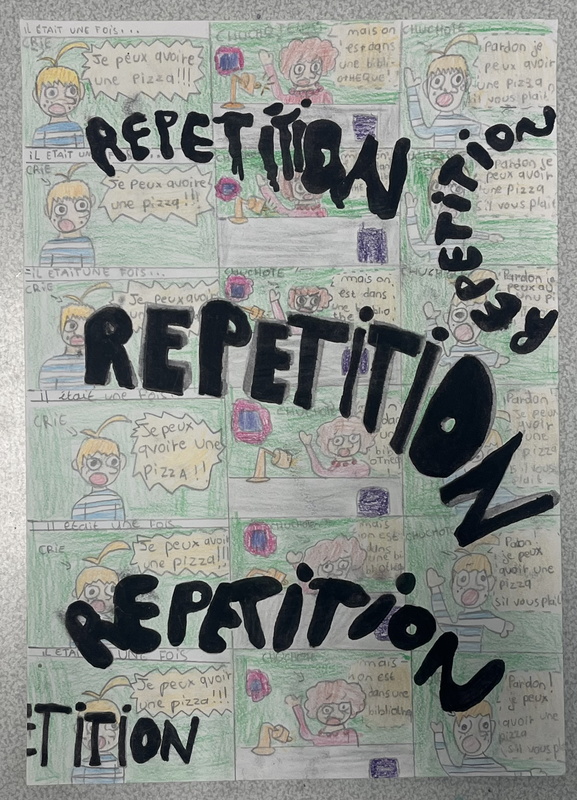 IL ÉTAIT UNE FOIS...
CRIE
Je peux avoire
une pizza!!!
CHUCHOTE
mais on
est dans
une bibli
OTHEQUE!
CHUCHOTE
Pardon je
peux avoir
une pizza
s'il vous plait
REPETITION
REPETITION
IL ETAIT UN
CRIE
Je Peux avoire
une pizza!!
Pardon je
Pizza
s'il vous plait
IL ETAIT UNE FOIS...
CRIE
Je peux
CHUCHOTE
mais on
est dans
CHUCHOTE
Pardon
REPETITION
Il était une FOIS
CRIE
Je peux
avoire une
pizza!!
CHUCHOTE
mais
on est
Pardon
Je peux
Il était une FOIS
CRIE
Je peux avoire
une pizza
mais
on est
dans
CHUCHOTE
je peux
avoir une
pizza
sil vous plait
REPETITION
IL ETAI UNE FOIS
Je peux avoir
une pizza!!!
CHUCHOTE
mais
on est
dans une
biblioth
Pardon!
je peux
avoir une
pizza
sil vous pl
ETITION